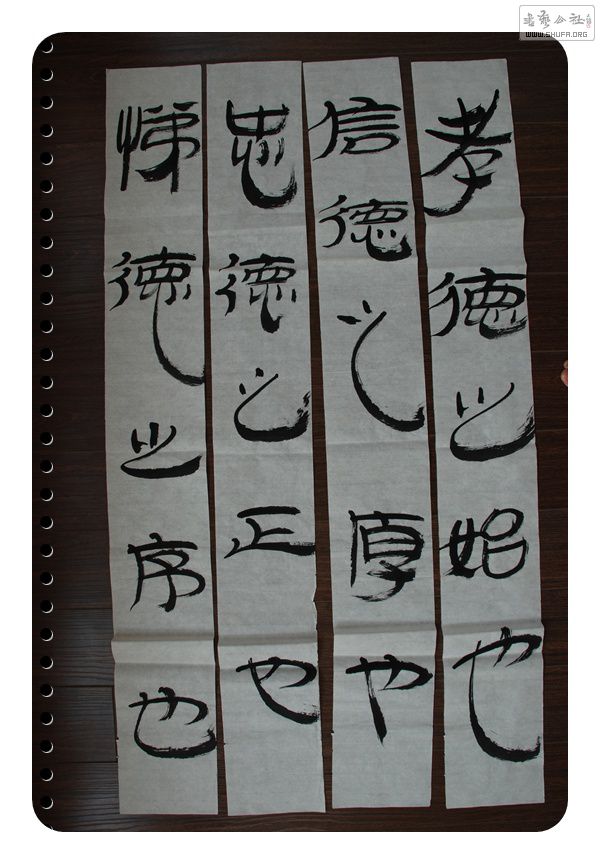 孝德之始也
信德之厚也
忠德之正也
悌德之序也
书艺公社
WWW.SHUFA.ORG